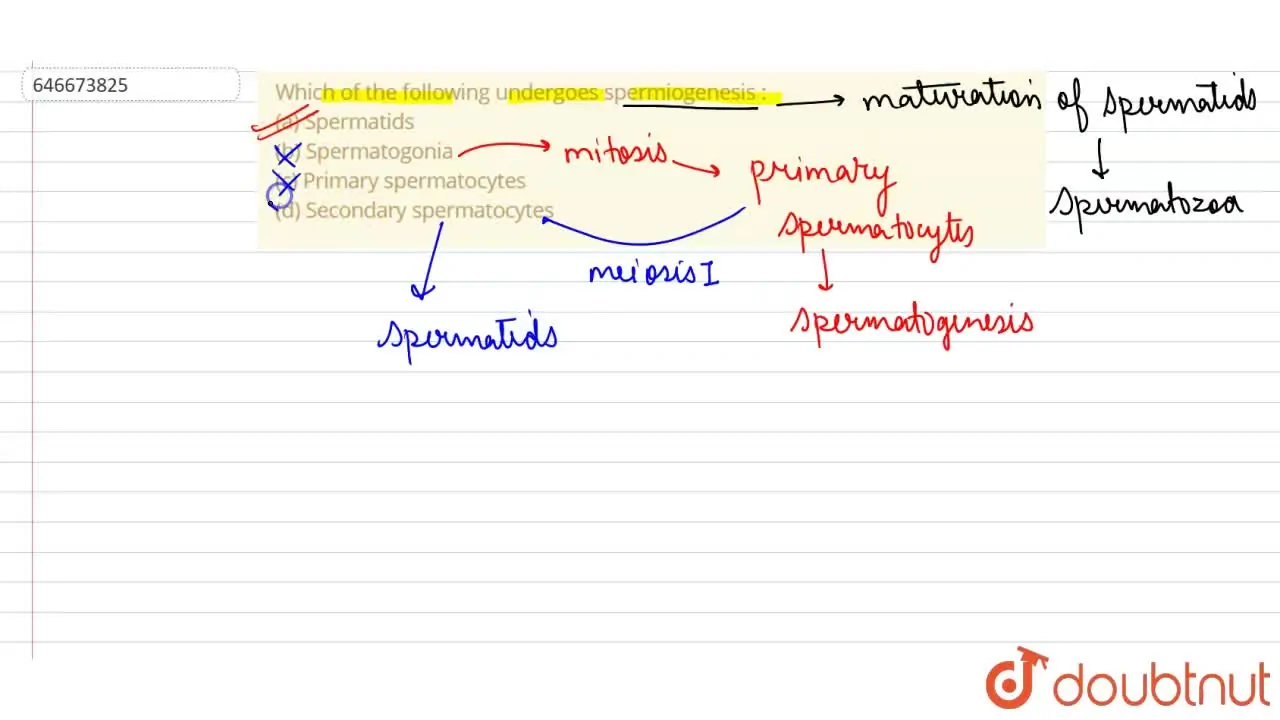 646673825
Which of the following undergoes spermiogenesis :
(a) Spermatids
(b) Spermatogonia
(c) Primary spermatocytes
(d) Secondary spermatocytes
maturation of spermatids
spermatozoa
mitosis
primary
spermatocytes
meiosis I
spermatogenesis
spermatids
doubtnut